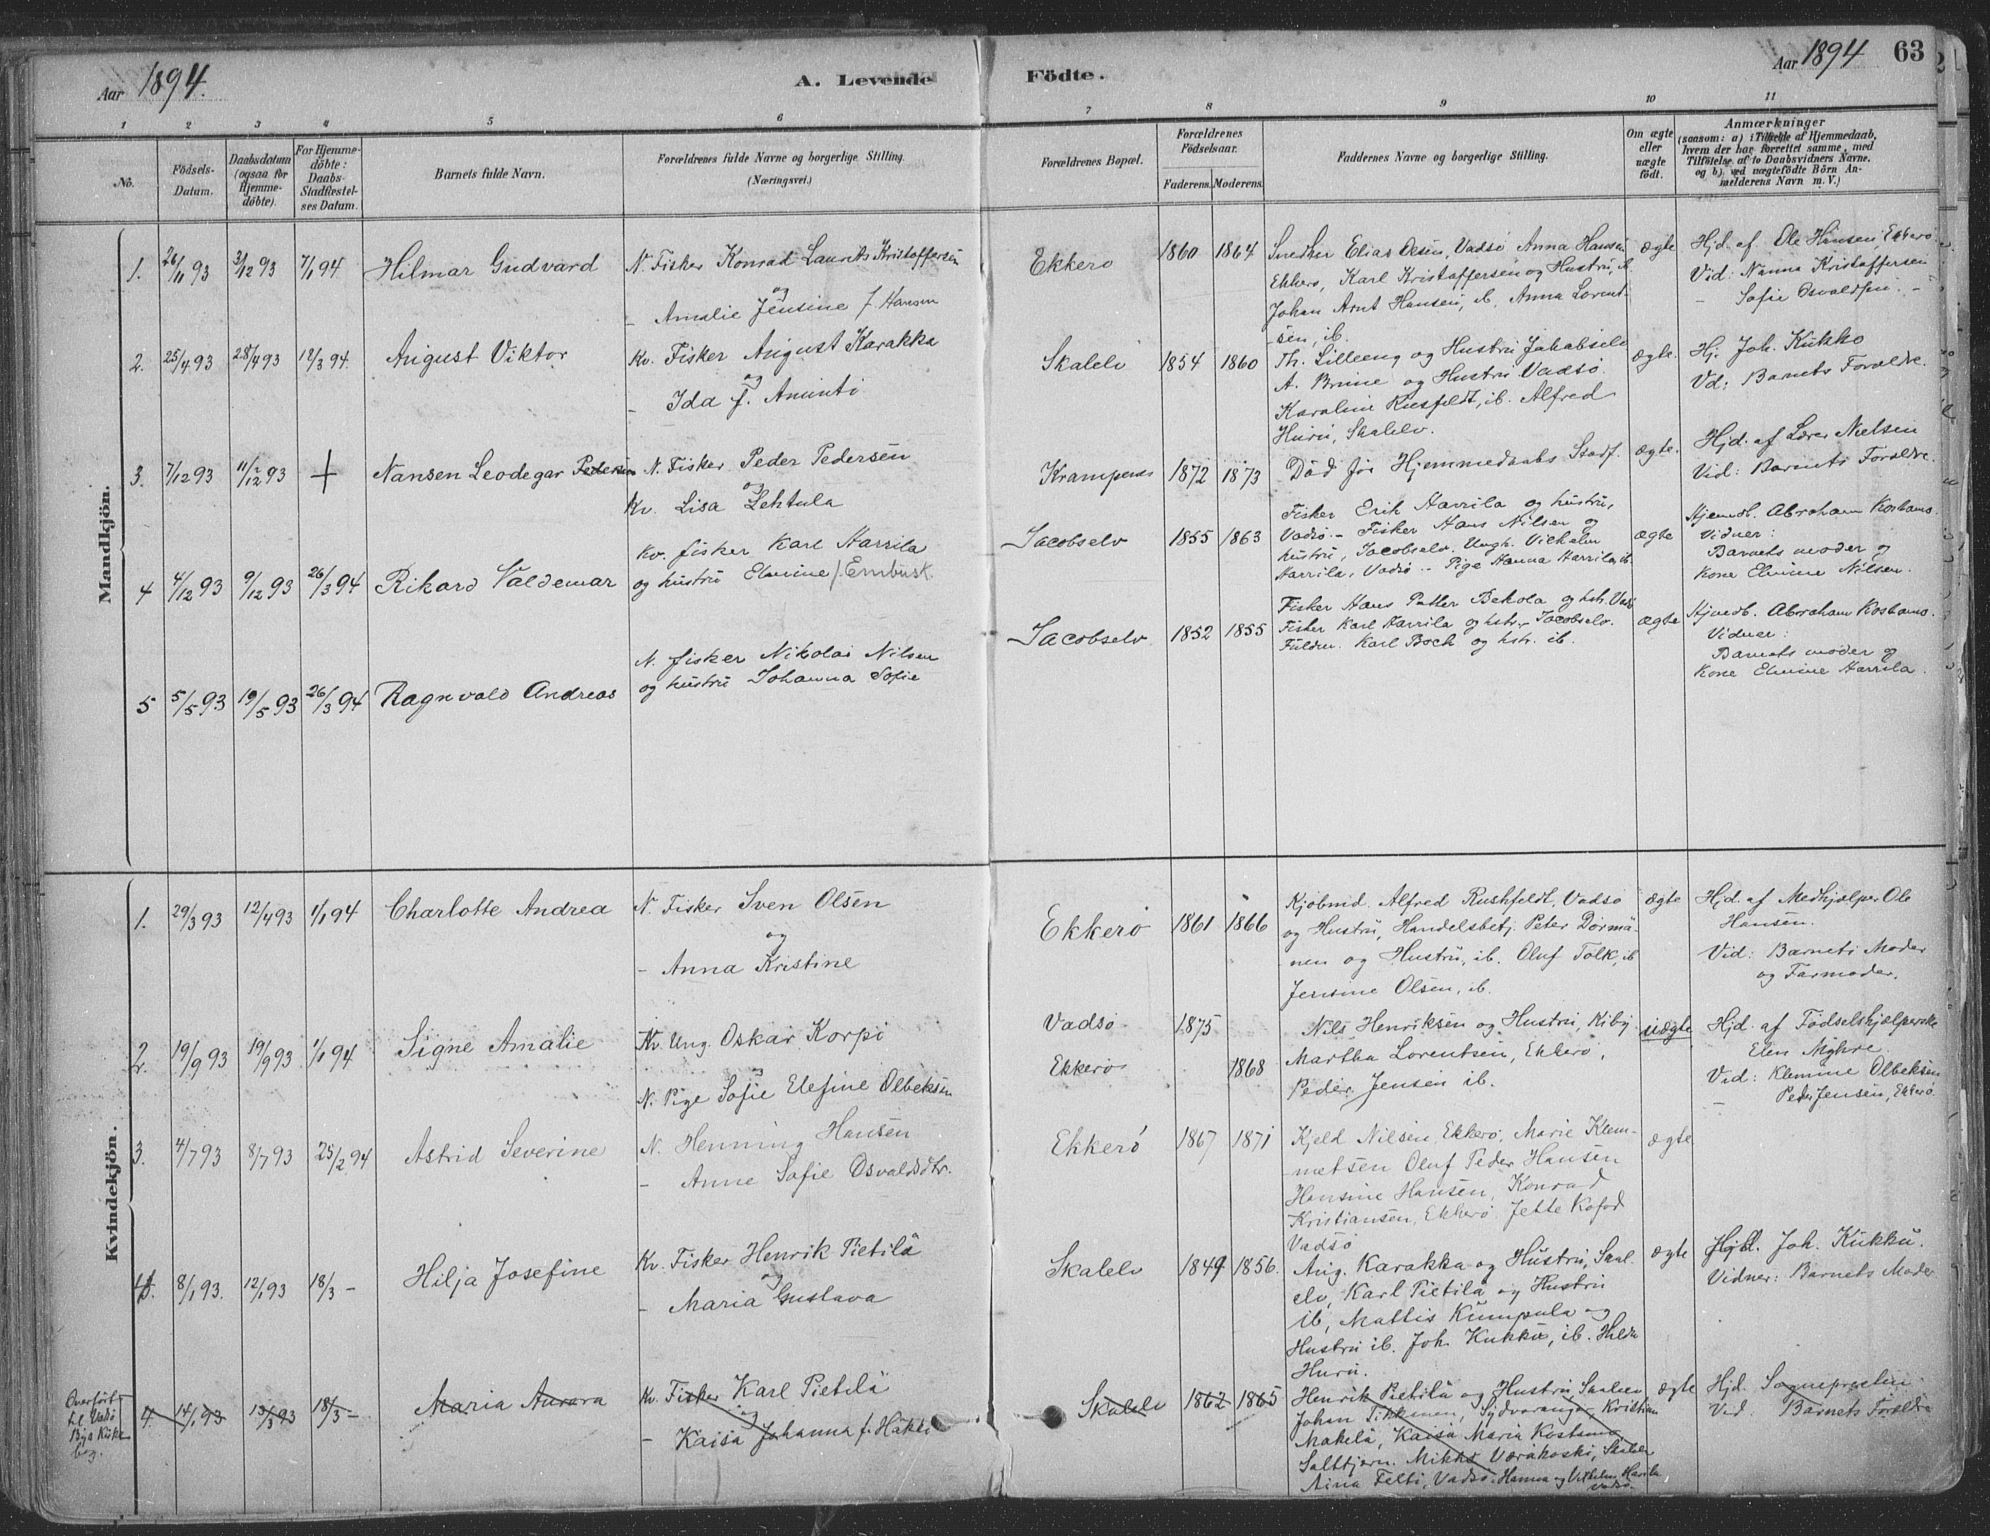 Aar 1894.
A. Levende
Födte.
Aar 1894
63
1 2 3 4 5 6 7 8 9 10 11
No.
Födsels-
Datum.
Daabsdatum
(ogsaa for
Hjemme-
døbte).
For Hjemme-
døbte:
Daabs-
Stadfæstel-
ses Datum.
Barnets fulde Navn.
Forældrenes fulde Navne og borgerlige Stilling.
(Næringsvei.)
Forældrenes Bopæl.
Forældrenes
Födselsaar.
Faderens. Moderens.
Faddernes Navne og borgerlige Stilling.
Om ægte
eller
uægte
født.
Anmærkninger
(saasom: a) i Tilfælde af Hjemmedaab,
hvem der har forrettet samme, med
Tilføielse af to Daabsvidners Navne,
og b) ved uægtefødte Börn An-
melderens Navn m. V.)
Mandkjön.
1. 26/11 93 3/12 93 7/1 94 Hilmar Gudvard
N. Fisker Konrad Laurits Kristoffersen
og
- Amalie Jensine f. Hansen
Ekkerø 1860 1864
Snedker Elias Olsen, Vadsø Anna Hansen
Ekkerø, Karl Kristoffersen og Hustru, ib.
Johan Arnt Hansen, ib, Anna Lorent-
sen, ib.
ægte
Hjd. af Ole Hansen, Ekkerø
Vid: Nanna Kristoffersen
- Sofie Osvaldsen. -
2. 25/4 93 28/4 93 12/3 94. August Viktor
Kv. Fisker August Karakka
og
- Ida f. Anunti
Skalelv 1854 1860
Th. Lilleeng og Hustru Jakobselv
A. Brune og Hustru Vadsø.
Karoline Ruśfeldt, ib. Alfred
Huru, Skalelv.
ægte.
Hj. Joh. Kukko
Vd: Barnets Forældre.
3. 7/12 93 11/12 93 + Nansen Leodegar Pedersen
N. Fisker Peder Pedersen
og
Kv. Lisa Lehtula
Krampenes 1872 1873
Død før Hjemmedaabs Stadf.
ægte.
Hjd. af Lærer Nielsen
Vid: Barnets Forældre.
4 4/12 93 9/12 93 26/3 94 Rikard Valdemar
Kv. fisker Karl Harrila
og hustru Elmine f. Embusk.
Jacobselv 1855 1863
Fisker Erik Harrila og hustru,
Vadsø. - Fisker Hans Nilsen og
hustru, Jacobselv. Ungk. Vilhelm
Harrila, Vadsø - Pige Hanna Harrila, ib.
ægte
Hjemdb. Abraham Kostamo.
Vidner:
Barnets moder og
Kone Elmine Nilsen.
5 5/5 93 19/5 93 26/3 94 Ragnvald Andreas
N. fisker Nikolai Nilsen
og hustru Johanna Sofie
Jacobselv 1852 1855
Fisker Hans Petter Bekola og hstr. Vadsø
Fisker Karl Harrila og hstr. Jacobselv.
Karl Boch og hstr. ib.
ægte
Hjmdb. Abraham Kostamo.
Vidner:
Barnets moder og
Kone Elmine Harrila.
Kvindekjön.
1. 29/3 93 12/4 93 1/1 94 Charlotte Andrea
N. Fisker Sven Olsen
og
- Anna Kristine
Ekkerø 1861 1866
Kjøbmd. Alfred Rushfeldt, Vadsø
og Hustru, Handelsbetj. Peter Dørmæ-
nen og Hustru, ib. Oluf Tolk, ib
Jensine Olsen, ib.
ægte
Hjd. af Medhjælper Ole
Hansen.
Vid: Barnets Moder
og Farmoder.
2. 19/9 93 19/9 93 1/1 94 Signe Amalie
Kv. Ung. Oskar Korpi
og
N. Pige Sofie Elefine Olbeksen
Vadsø 1875
Ekkerø 1868
Nils Henriksen og Hustru, Kiby
Martha Lorentsen, Ekkerø,
Peder Jensen ib.
uægte
Hjd. af Fødselshjælperske
Elen Myhre
Vid: Klemine Olbeksen
- Peder Jensen, Ekkerø.
3. 4/7 93 8/7 93 25/2 94 Astrid Severine
N. Henning Hansen
- Anne Sofie Osvaldsdtr.
Ekkerø 1867 1871
Kjeld Nilsen, Ekkerø, Marie Klem-
metsen Oluf Peder Hansen
Hansine Hansen, Konrad
Kristiansen, Ekkerø Jette Kofod
Vadsø
ægte
4. 8/1 93. 12/1 93 18/3 - Hilja Josefine
Kv. Fisker Henrik Pietilä
og
- Maria Gustava
Skalelv 1849 1856.
Aug. Karakka og Hustru, Skal-
elv, Karl Pietila og Hustru
ib, Mattis Kumpula og
Hustru ib. Joh. Kukko, ib. Hilda
Huru.
ægte
Hjd. Joh. Kukku.
Vidner: Barnets Moder
Overført
til Vadsø
Bys Kirke
bog.
4. 14/1 93 13/3 93 18/3 - Maria Aurora
Kv. Fisker Karl Pietilä
og
- Kaisa Johanna f. Hakti
Skalelv 1862 1865
Henrik Pietilä og Hustru Skalelv
Johan Sikkinen, Sydvaranger, Kristian
Makelä, Kaisa Maria Kostamo
Saltbjern. Mikko Værakoski, Skalelv
Aina Felti, Vadsø. Hanna og Vilhelm Harila
Vadsø.
ægte
Hjd. Sognepresten
Vid Barnets Forældre